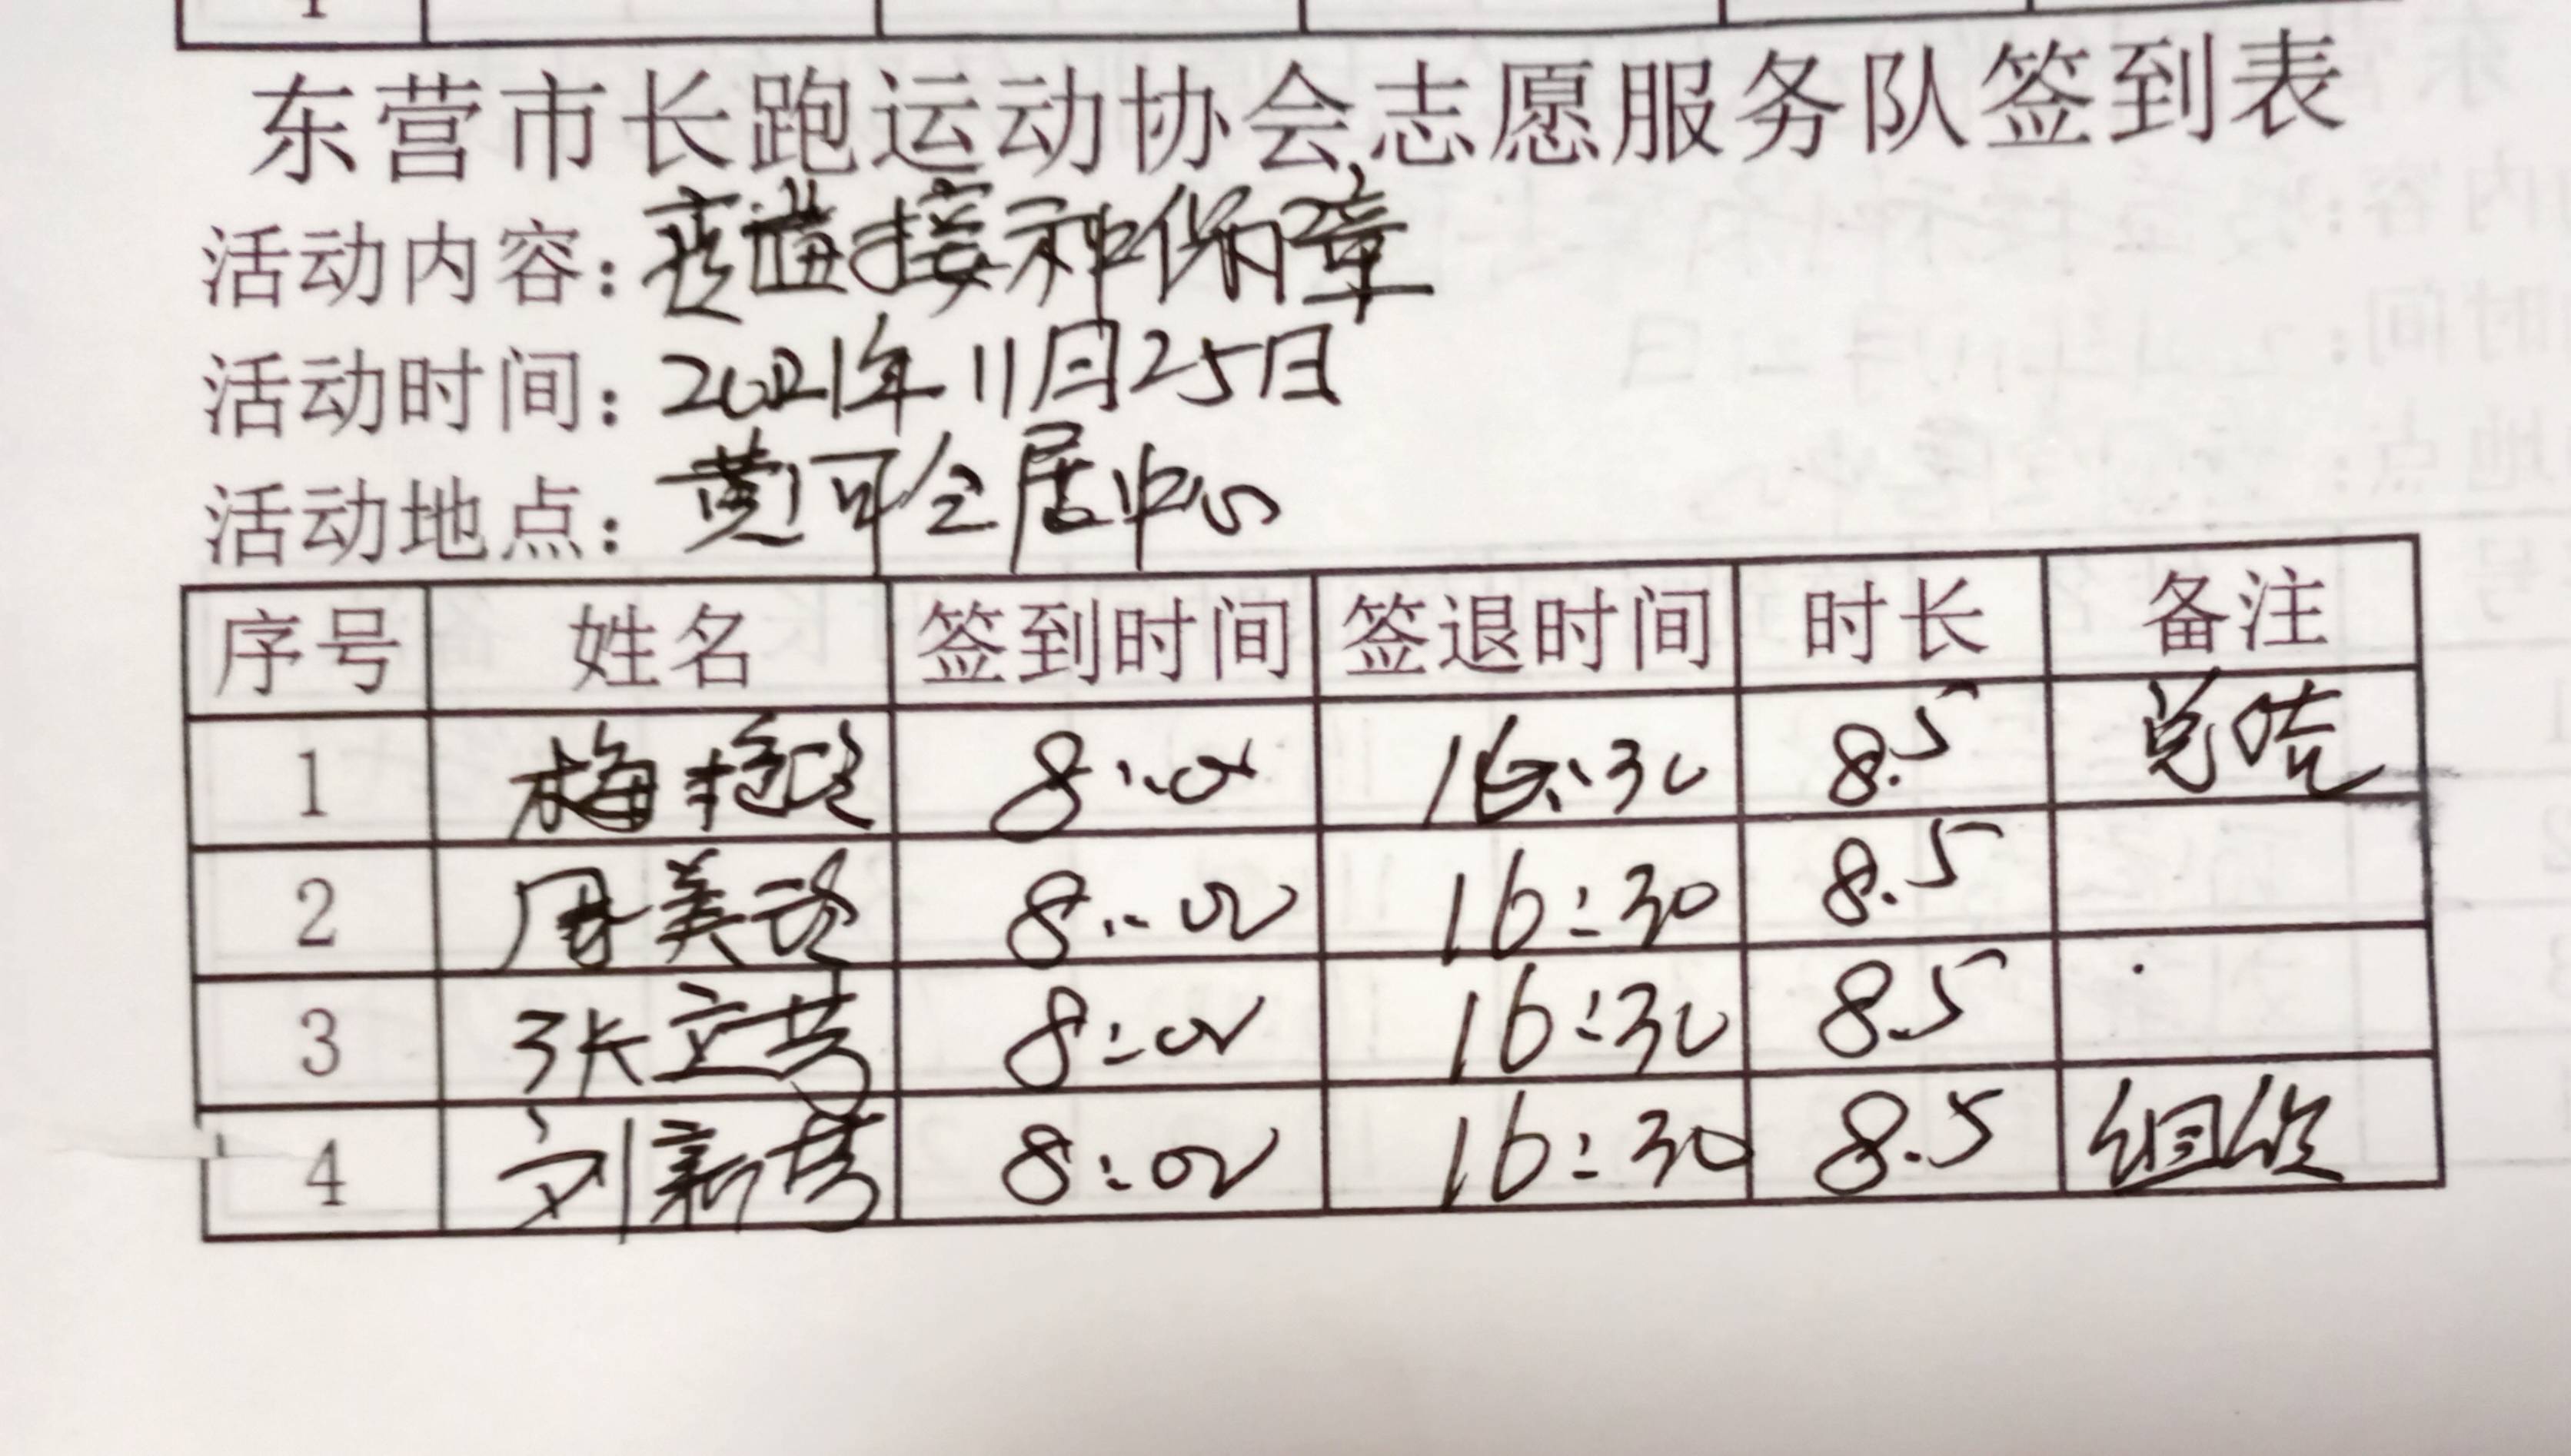 东营市长跑运动协会志愿服务队签到表
活动内容：疫苗接种保障
活动时间：2021年11月25日
活动地点：黄河全居中心
序号 姓名 签到时间 签退时间 时长 备注
1 梅艳玲 8:00 16:30 8.5 总院
2 周美玲 8:00 16:30 8.5
3 张立芳 8:00 16:30 8.5
4 刘新芳 8:00 16:30 8.5